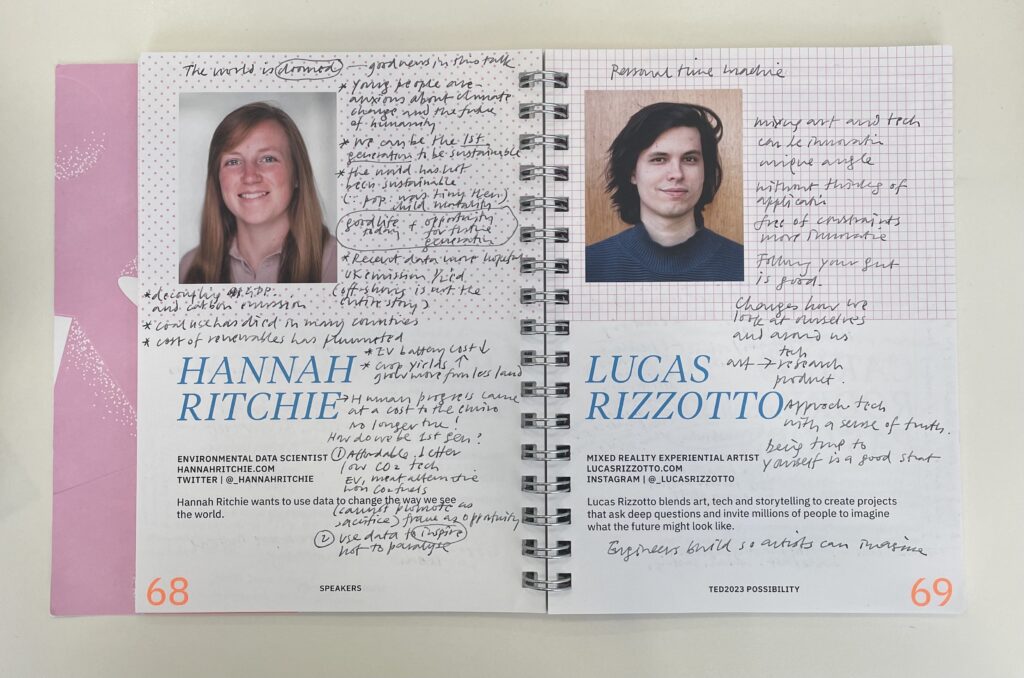 The world is doomed — good news in this talk
* Young people are
anxious about climate
change and the future
of humanity
* We can be the 1st
generation to be sustainable
* the world has not
been sustainable
(∵ pop. was tiny then)
child mortality
good life today + opportunity for future generation
* Recent data more hopeful
UK emission
(off-shoring is not the
entire story)
* decoupling GDP
and carbon emission
* coal use has died in many countries
* cost of renewables has plummeted
* EV battery cost ↓
* crop yields ↑
grow more from less land
HANNAH
RITCHIE
→ Human progress came
at a cost to the enviro
no longer true!
How do we be 1st gen?
① Affordable, better
low CO2 tech
EV, meat alternative
(cannot promote as
sacrifice) frame as opportunity
② use data to inspire
not to paralyse
ENVIRONMENTAL DATA SCIENTIST
HANNAHRITCHIE.COM
TWITTER | @_HANNAHRITCHIE
Hannah Ritchie wants to use data to change the way we see
the world.
68
SPEAKERS
Personal time machine
mixing art and tech
can be innovative
unique angle
without thinking of
application
free of constraints
more innovative
Following your gut
is good.
Changes how we
look at ourselves
and around us
tech
art → research
product.
LUCAS
RIZZOTTO
Approach tech
with a sense of truth.
being true to
yourself is a good start
MIXED REALITY EXPERIENTIAL ARTIST
LUCASRIZZOTTO.COM
INSTAGRAM | @_LUCASRIZZOTTO
Lucas Rizzotto blends art, tech and storytelling to create projects
that ask deep questions and invite millions of people to imagine
what the future might look like.
Engineers build so artists can imagine
TED2023 POSSIBILITY
69